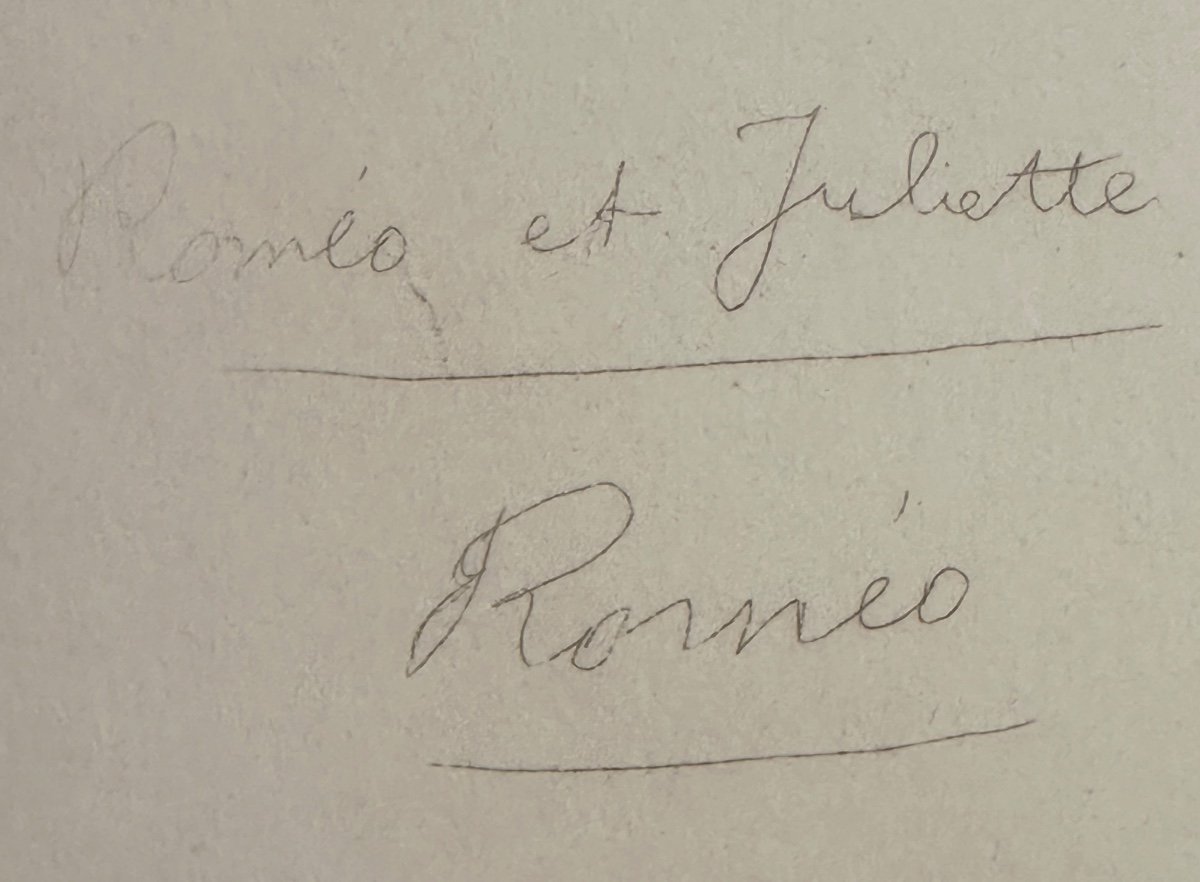 Roméo et Juliette
Roméo